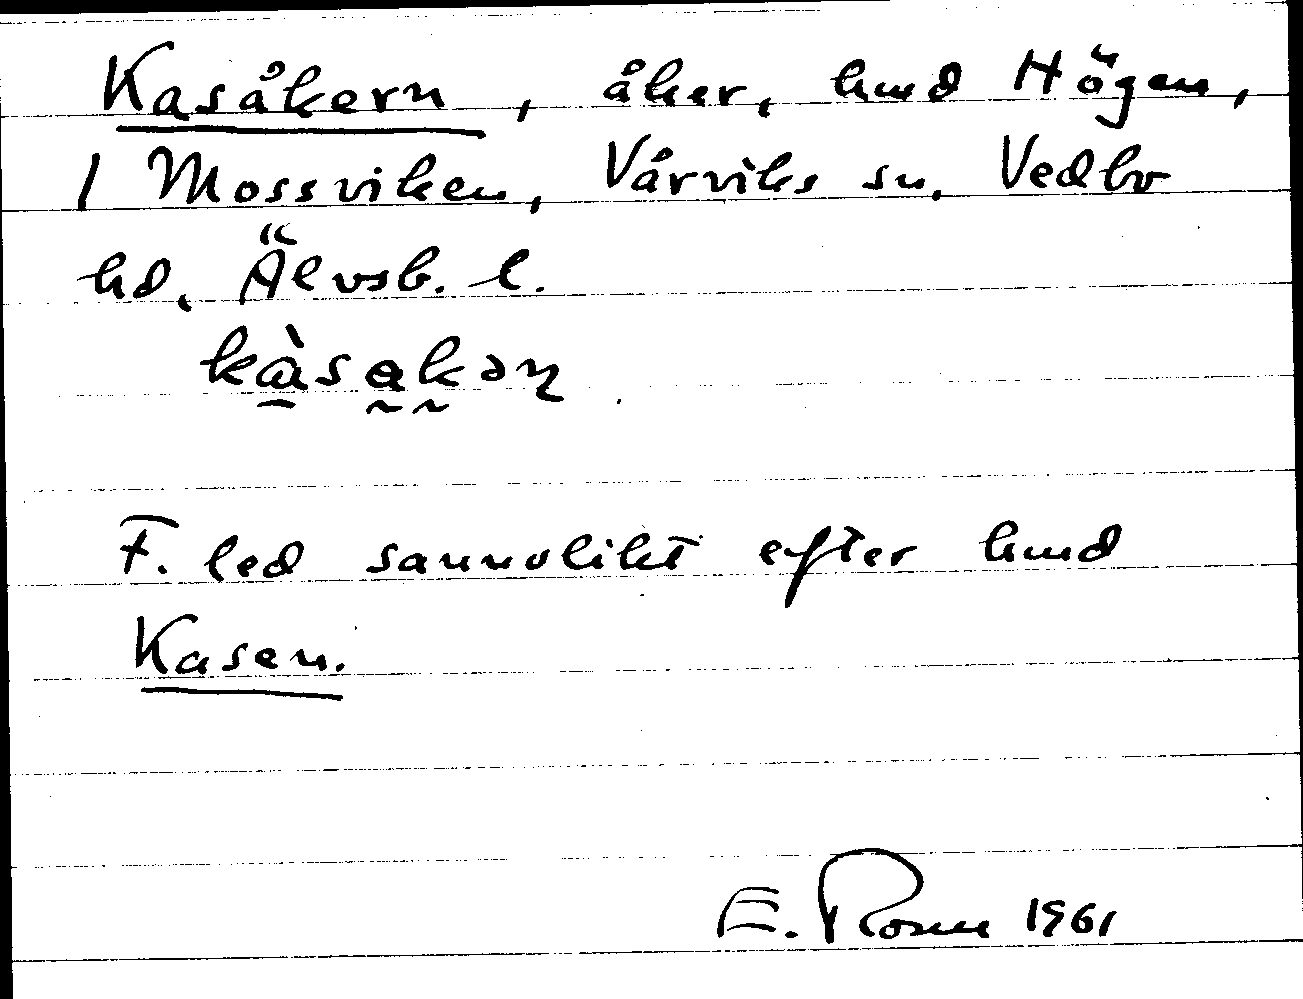 Kasåkern, åker, hmd Högen,
1 Mossviken, Vårviks sn. Vedbo
hd, Älvsb. l.
kàsakən
F. led sannolikt efter hmd
Kasen.
E. Rosen 1961